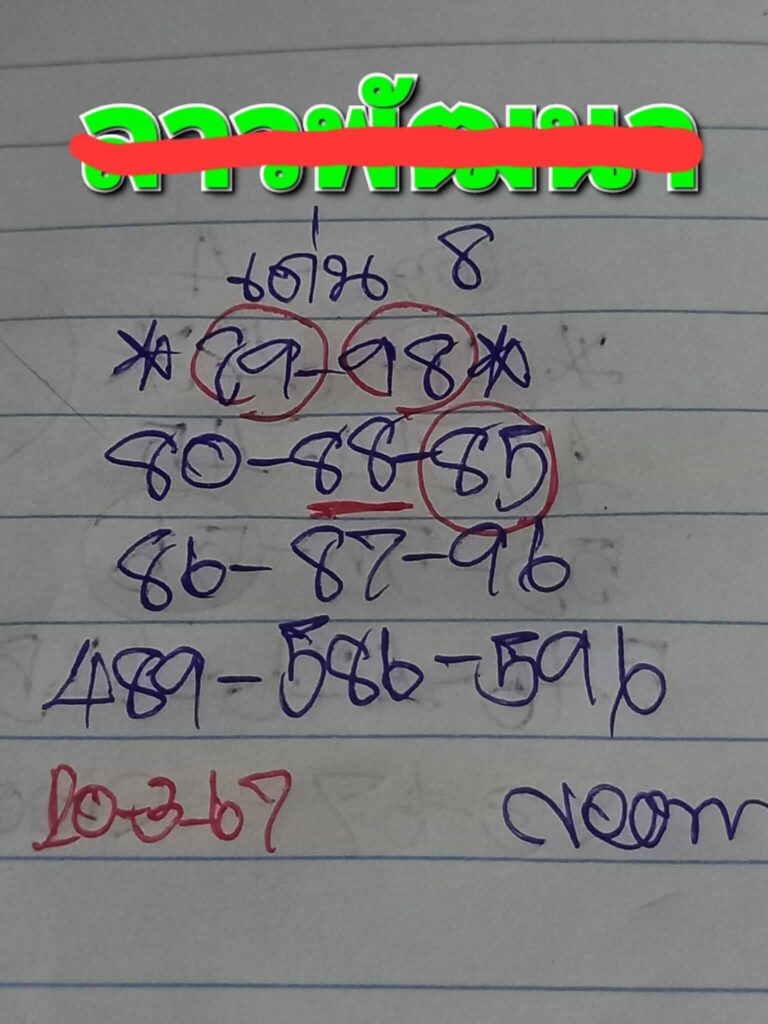 ลาวพัฒนา
เด่น 8
* 89-98 *
80-88-85
86-87-96
489-586-596
20-3-67